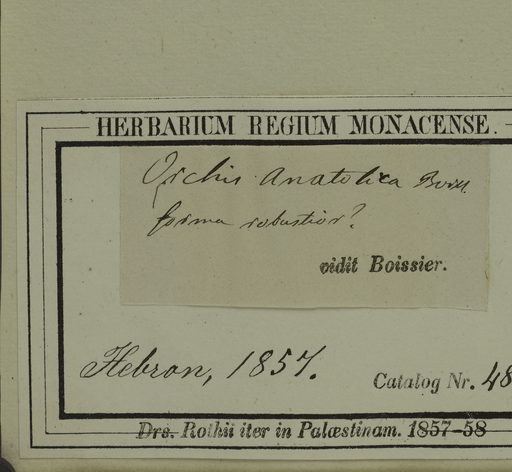 HERBARIUM REGIUM MONACENSE.
Orchis Anatolica Boiss.
forma robustior?
vidit Boissier.
Hebron, 1857.
Catalog Nr. 48
Drs. Rothii iter in Palæstinam. 1857-58